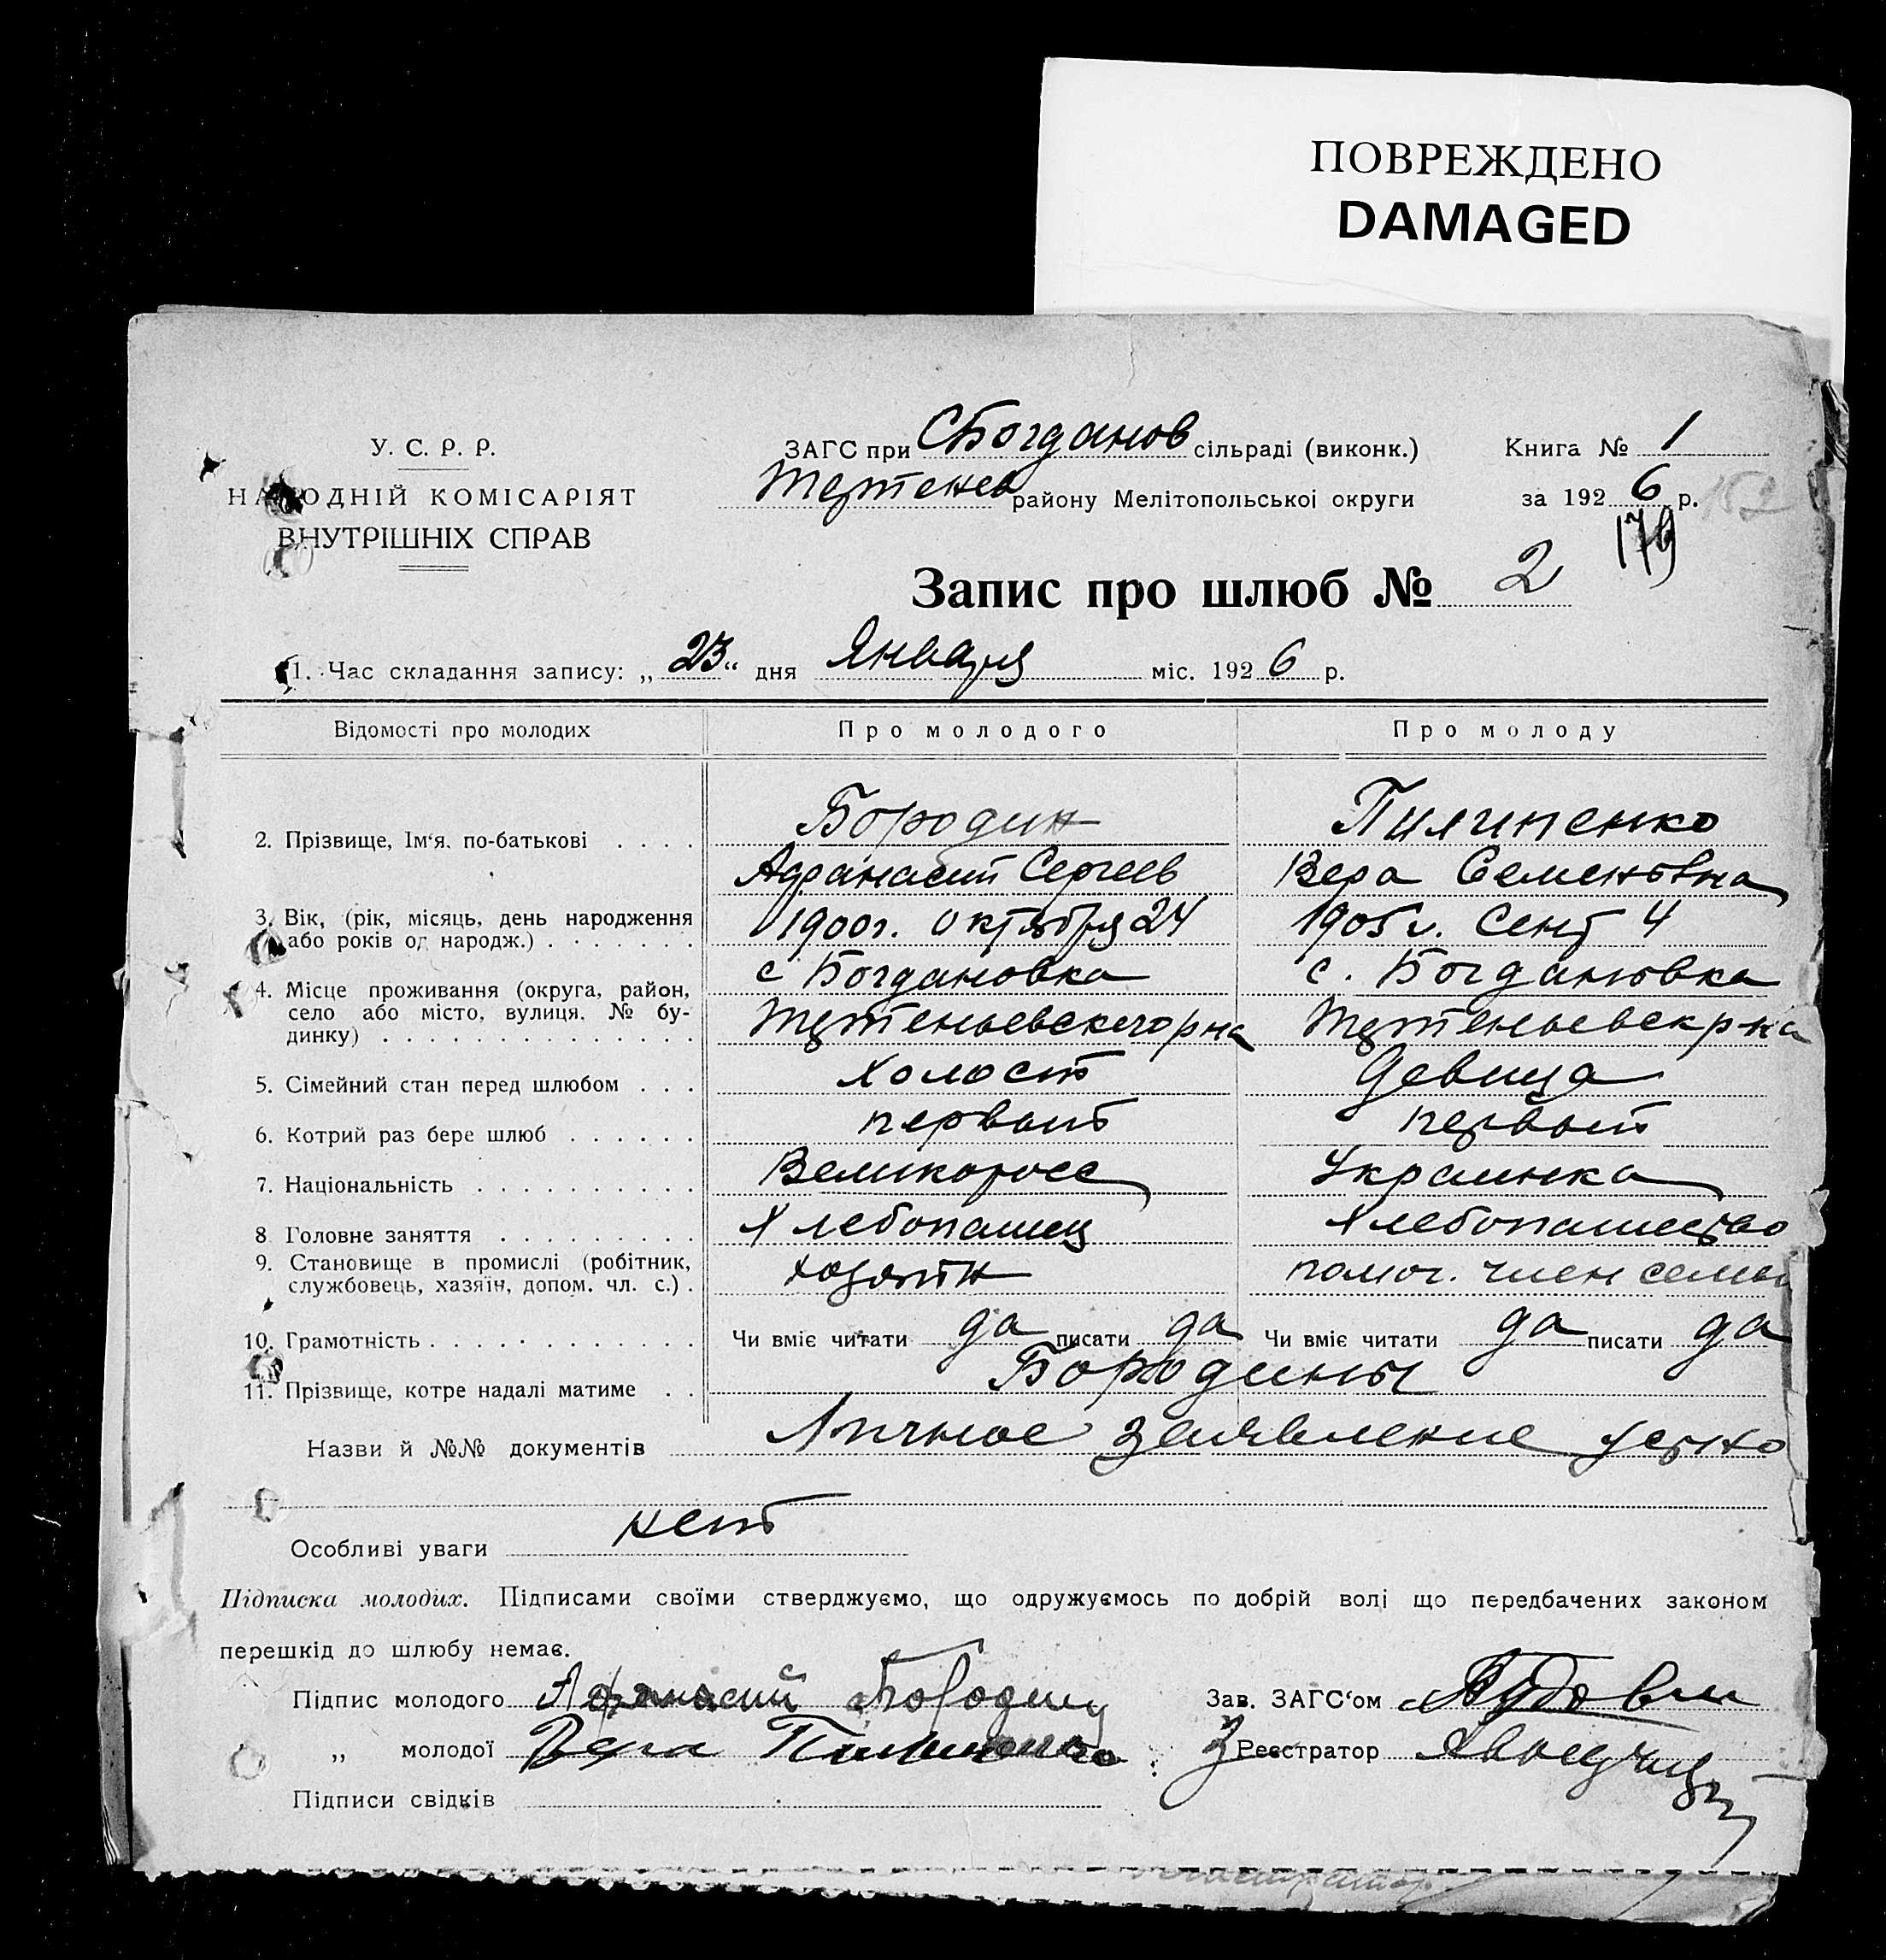 ПОВРЕЖДЕНО
DAMAGED
У. С. Р. Р.
НАРОДНІЙ КОМІСАРІЯТ
ВНУТРІШНІХ СПРАВ
ЗАГС при СБогданов сільраді (виконк.)
района Мелітопольської округи
Книга № 1
за 1926 р. 152
179
Запис про шлюб № 2
1. Час складання запису: „23“ дня Января міс. 1926 р.
Відомості про молодих Про молодого Про молоду
2. Прізвище, Ім‘я. по-батькові . . . . Бородин Пилипенко
Афанасий Сергеев Вера Семеновна
3. Вік, (рік, місяць, день народження 1900г. октября 24 1905 г. Сент 4
або років од народж.) . . . . . . .
4. Місце проживання (округа, район, с Богдановка с. Богдановка
село або місто, вулиця. № бу-
динку) . . . . . . . . . . . . . .
5. Сімейний стан перед шлюбом . . . Холост Девица
6. Котрий раз бере шлюб . . . . . . первый первый
7. Національність . . . . . . . . . . Великоросс Украинка
8 Головне заняття . . . . . . . . . Хлебопашец Хлебопашество
9. Становище в промислі (робітник, хозяин помог. член семьи
службовець, хазяїн, допом. чл. с.) .
10. Грамотність . . . . . . . . . . . . Чи вміє читати да писати да Чи вміє читати да писати да
11. Прізвище, котре надалі матиме . . Бородины
Назви й №№ документів Личное заявление устно
Особливі уваги нет
Підписка молодих. Підписами своїми стверджуємо, що одружуємось по добрій волі що передбачених законом
перешкід до шлюбу немає.
Підпис молодого Афанасий Бородин Зав. ЗАГС‘ом
„ молодої Вера Пилипенко Реєстратор
Підписи свідків